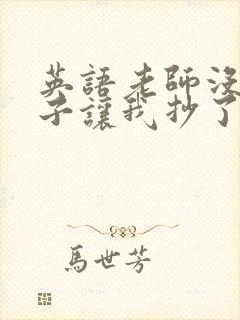 英語老師沒
子讓我抄了
馬世芳